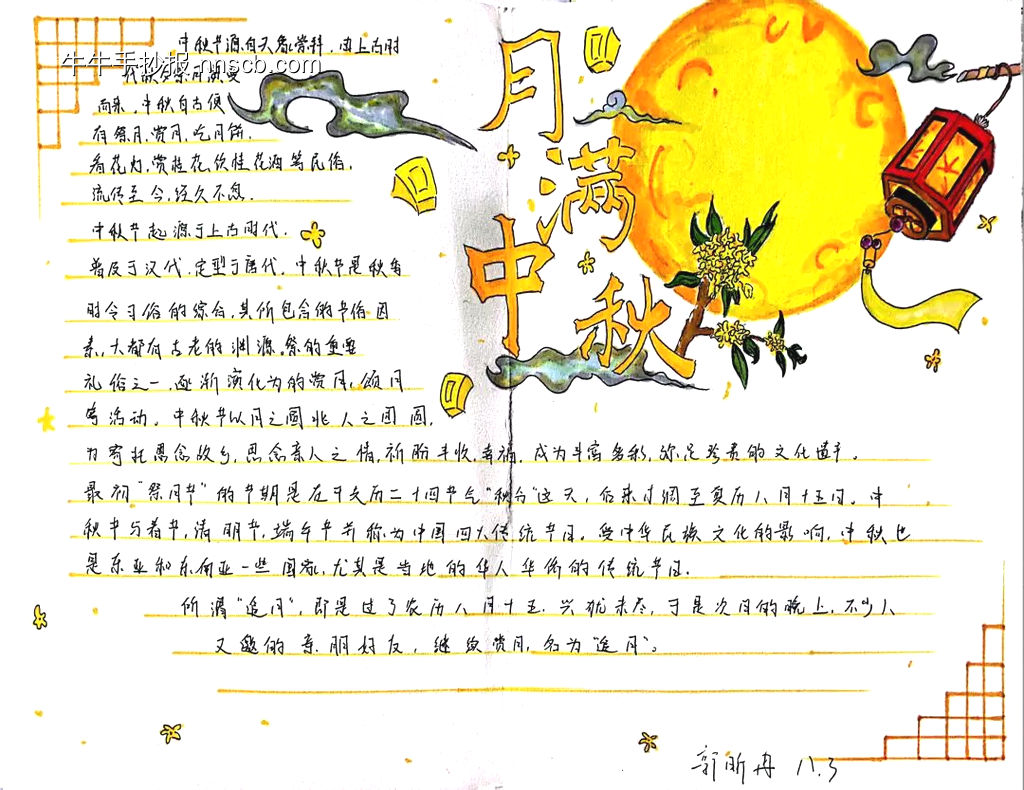 中秋节源自天象崇拜，由上古时
牛牛手抄报-nnscb.com
代秋夕祭月演变
而来，中秋自古便
有祭月，赏月，吃月饼，
看花灯，赏桂花，饮桂花酒等民俗，
流传至今，经久不息。
中秋节起源于上古时代，
普及于汉代，定型于唐代。中秋节是秋季
时令习俗的综合，其所包含的节俗因
素，大都有古老的渊源。祭的重要
礼俗之一，逐渐演化为的赏月，颂月
等活动。中秋节以月之圆兆人之团圆，
为寄托思念故乡，思念亲人之情，祈盼丰收，幸福，成为丰富多彩，弥足珍贵的文化遗产。
最初“祭月节”的节期是在干支历二十四节气“秋分”这天，后来才调至夏历八月十五日。中
秋中与春节，清明节，端午节并称为中国四大传统节日。受中华民族文化的影响，中秋也
是东亚和东南亚一些国家，尤其是当地的华人华侨的传统节日。
所谓“追月”，即是过了农历八月十五，兴犹未尽，于是次月的晚上，不少人
又邀约亲朋好友，继续赏月，名为“追月”。
月满
中秋
郭昕冉 八.3